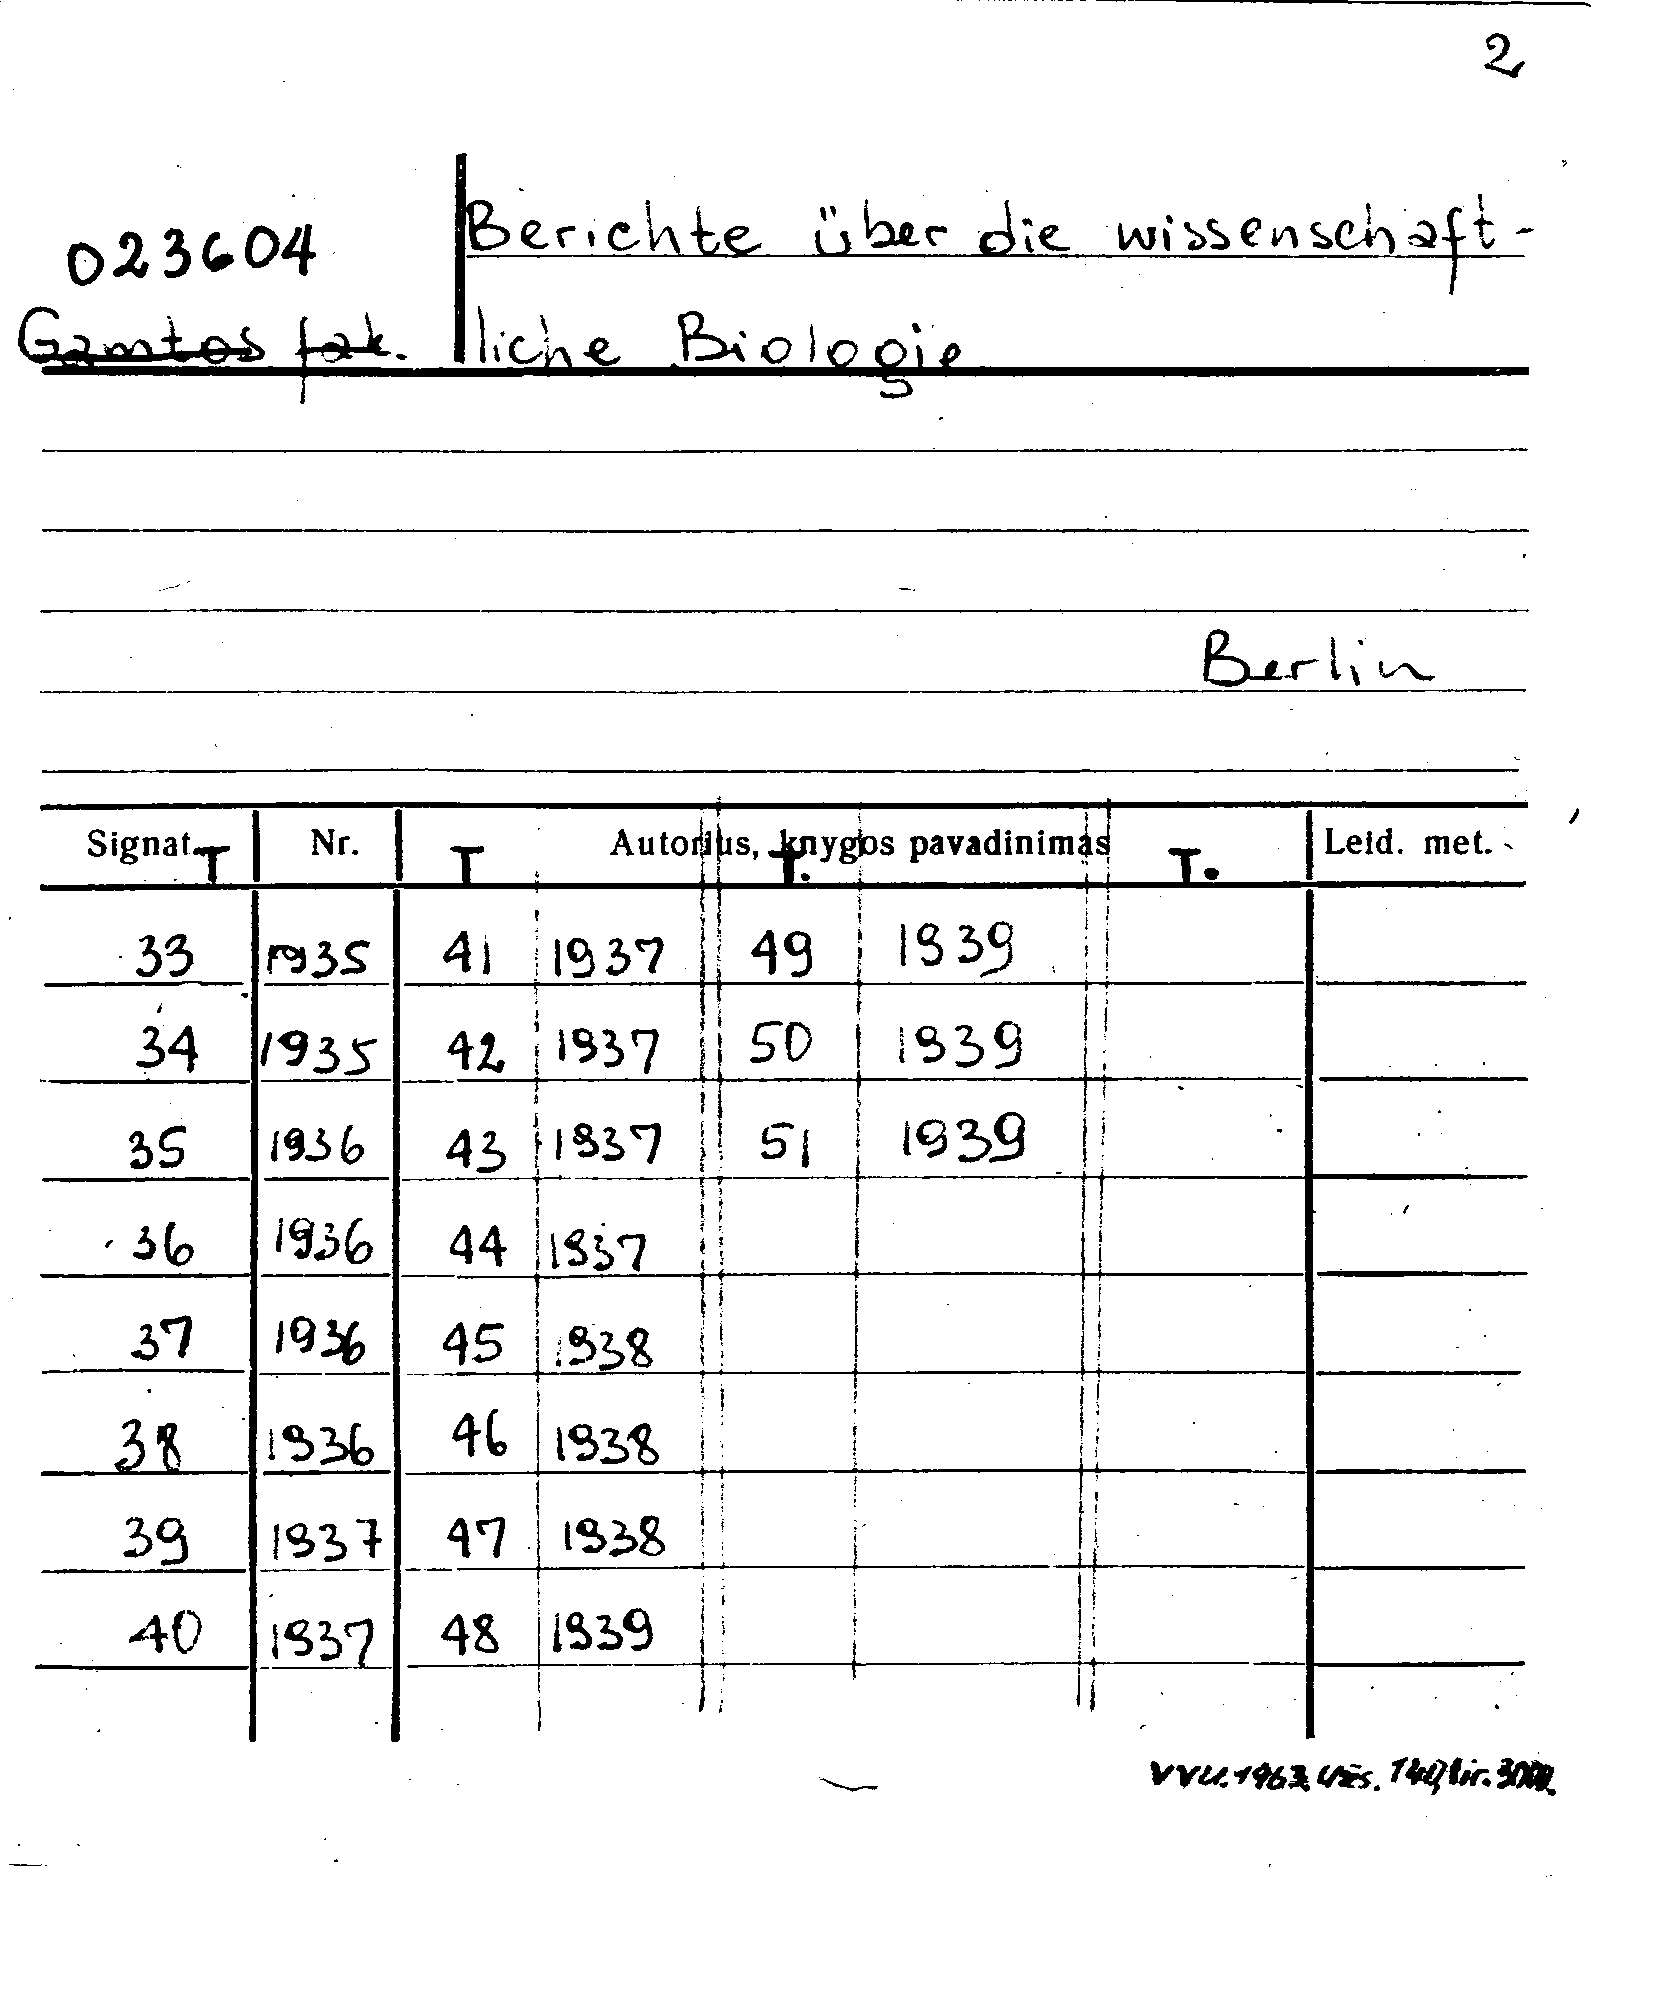 2
023604 Berichte über die wissenschaft-
Gamtos fak. liche Biologie
Berlin
Signat. T Nr. T Autorius, knygos pavadinimas T. T. Leid. met.
33 1935 41 1937 49 1939
34 1935 42 1937 50 1939
35 1936 43 1937 51 1939
36 1936 44 1937
37 1936 45 1938
38 1936 46 1938
39 1937 47 1938
40 1937 48 1939
VVU. 1963. Užs.